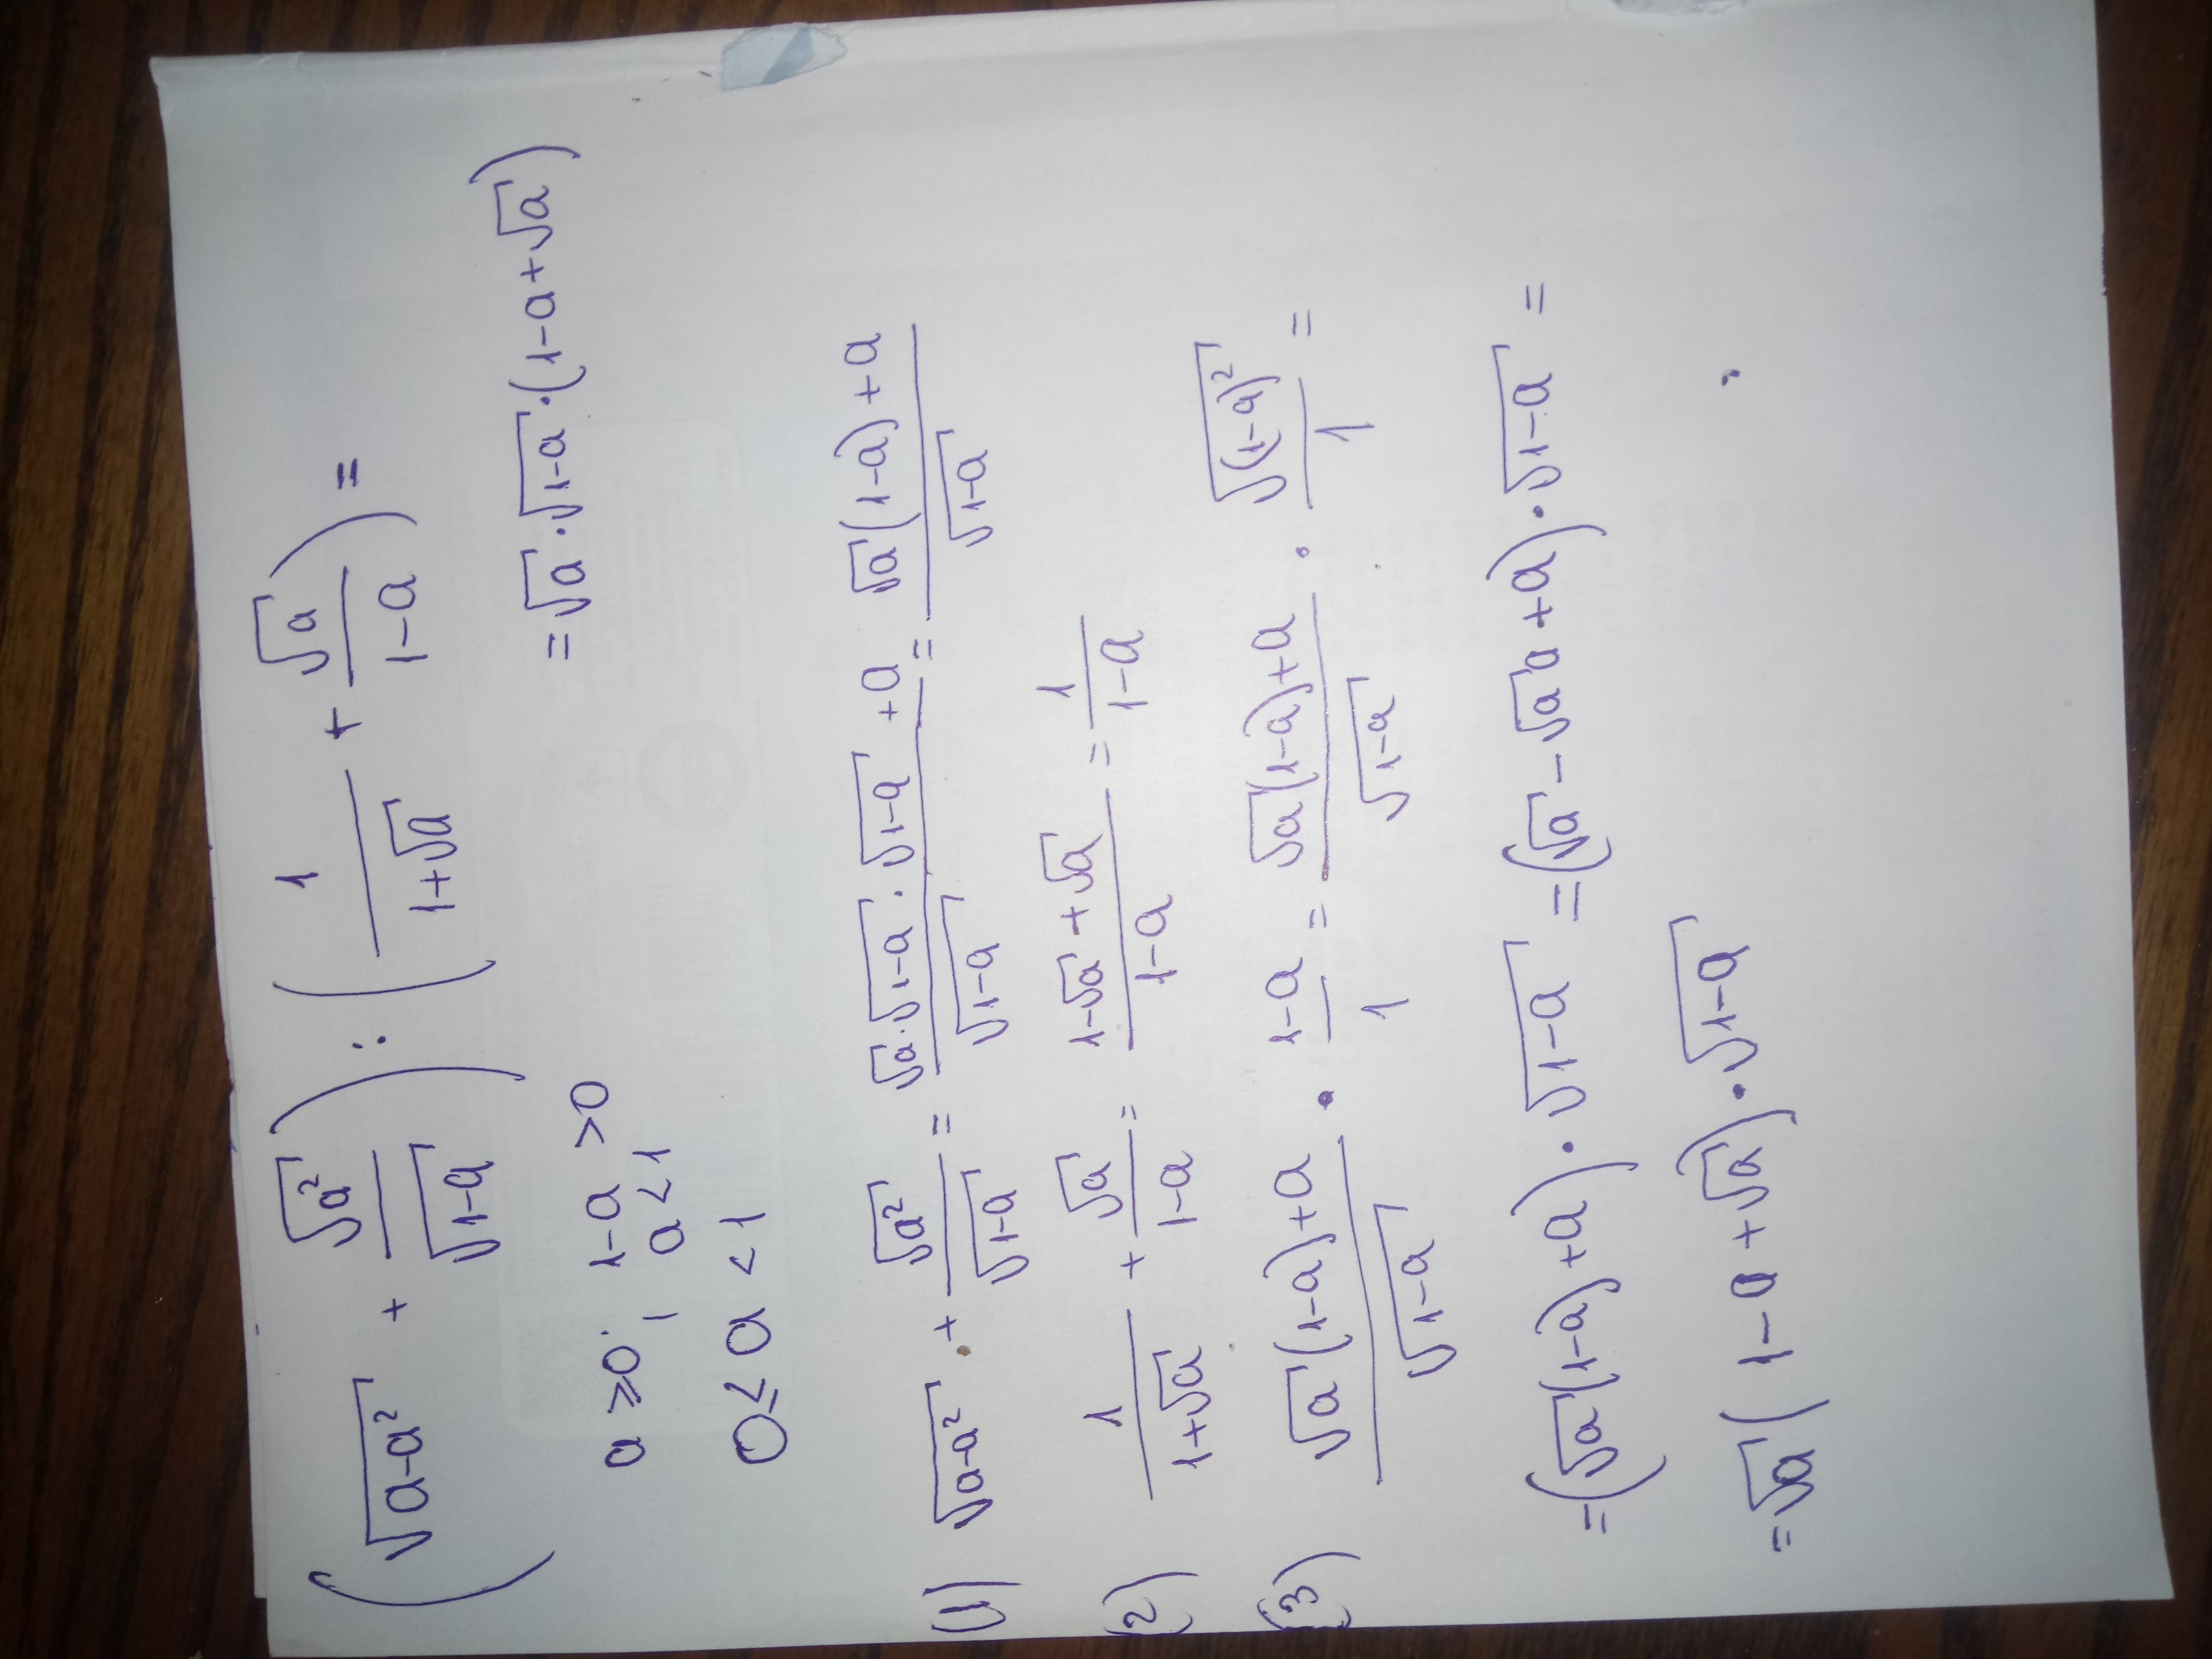 (√(a-a²) + √a²/√(1-a)) : (1/(1+√a) + √a/(1-a)) =
= √a · √(1-a) · (1-a+√a)
a ≥ 0; 1-a > 0
a < 1
0 ≤ a < 1
(1) √(a-a²) + √a²/√(1-a) = (√a · √(1-a) · √(1-a) + a)/√(1-a) = (√a(1-a)+a)/√(1-a)
(2) 1/(1+√a) + √a/(1-a) = (1-√a+√a)/(1-a) = 1/(1-a)
(3) (√a(1-a)+a)/√(1-a) · (1-a)/1 = (√a(1-a)+a)/√(1-a) · √(1-a)²/1 =
= (√a(1-a)+a) · √(1-a) = (√a - √a a + a) · √(1-a) =
= √a (1-a+√a) · √(1-a)